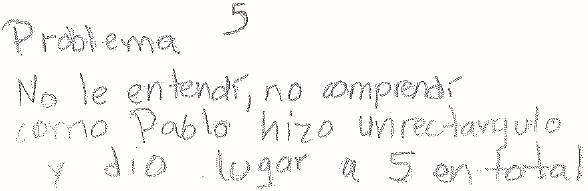 Problema 5
No le entendí, no comprendí
como Pablo hizo un rectangulo
y dio lugar a 5 en total